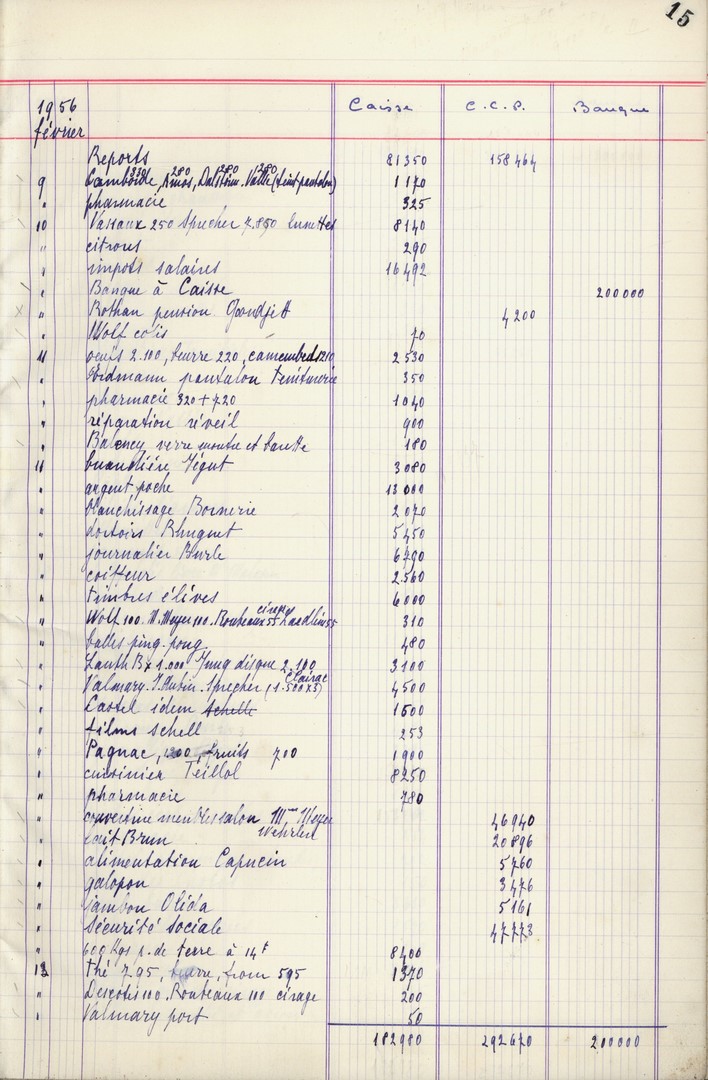 15
1956 Caisse C.C.P. Banque
février
Reports 81350 158464
330 280 280 280
9 Camboide, Amos, Dalstein. Valle (teint pantalon) 1170
" pharmacie 325
10 Vassaux 250 Sprecher 7.850 lunettes 8140
" citrons 290
" impots salaires 16492
" Banque à Caisse 200000
" Rothan pension Goondjett 4200
" Wolf colis 70
11 oeufs 2.100, beurre 220, camembed 1210 2530
" Erdmann pantalon teinturerie 350
" pharmacie 320+720 1040
" réparation réveil 900
" Balency verre montre et barette 180
11 buandière Végut 3080
" argent poche 13000
" blanchissage Bornerie 2070
" dortoirs Rhuguet 5450
" journalier Burle 6790
" coiffeur 2560
" timbres élèves 6000
cirage
" Wolf 100. M. Meyer 100. Roubeaux 55 Laedlin 55 310
" balles ping-pong 480
" Lauth B x 1.000 Jung disque 2.100 3100
Clairac
" Valmary. J. Aubin. Sprecher (1.500x3) 4500
" Castel idem Schelle 1500
" films Schell 253
" Pagnac, 1200, fruits 700 1900
" cuisinier Teillol 8250
" pharmacie 780
" couverture meubles salon Mme Meyer 46940
Wehrlen
" lait Brun 20896
" alimentation Capucin 5760
" galopon 3476
" jambon Olida 5161
" Sécurité Sociale 47773
" 600 Kgs p. de terre à 14f 8400
12 thé 795, beurre, from 595 1370
" Descotis 100. Roubeaux 100 cirage 200
" Valmary port 50
182980 292670 200000